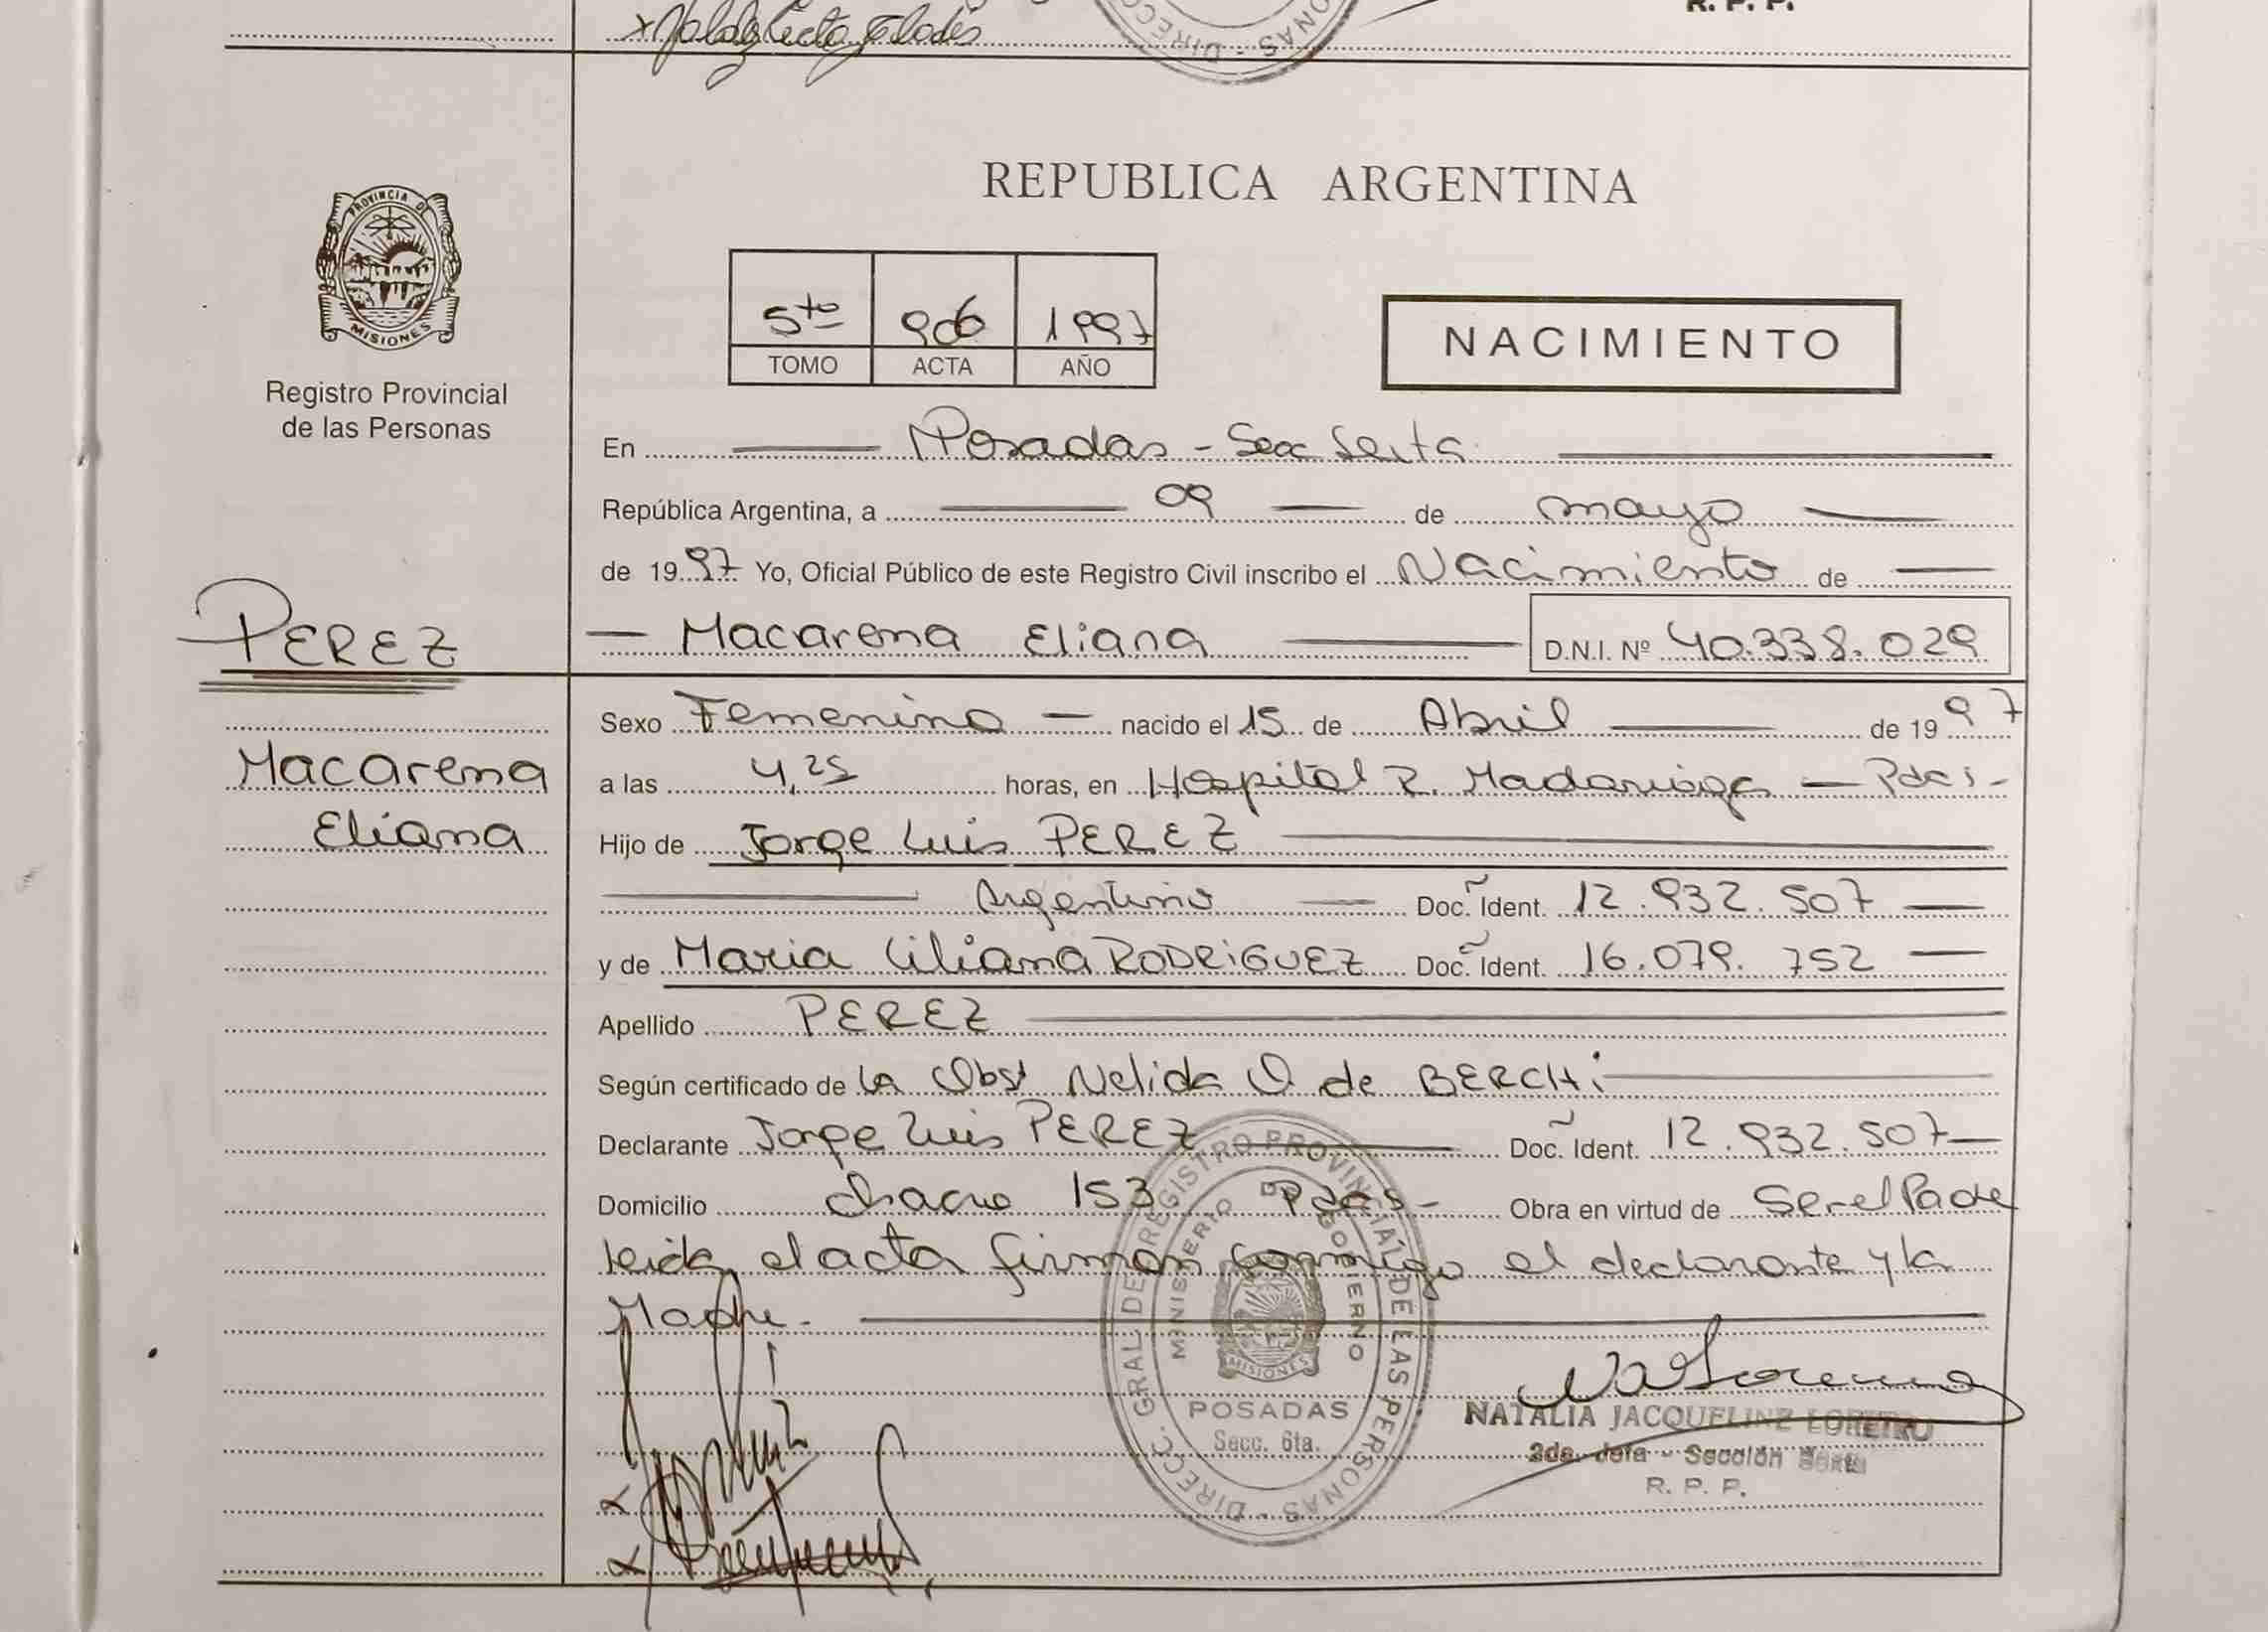 R. P. P.
DIRECC
SONAS
PROVINCIA DE
MISIONES
Registro Provincial
de las Personas
REPUBLICA ARGENTINA
5to 906 1997
TOMO ACTA AÑO
NACIMIENTO
En Posadas - Secc Sexta
República Argentina, a 09 de mayo
de 1997 Yo, Oficial Público de este Registro Civil inscribo el Nacimiento de
PEREZ
Macarena Eliana D.N.I. Nº 40.338.029
Sexo Femenino nacido el 15 de Abril de 1997
Macarena
Eliana
a las 4,25 horas, en Hospital R. Madariaga - Pdas-
Hijo de Jorge Luis PEREZ
Argentino Doc. Ident. 12.932.507
y de Maria Liliana RODRiGUEZ Doc. Ident. 16.079.752
Apellido PEREZ
Según certificado de La Obst Nelida O. de BERCHi
Declarante Jorge Luis PEREZ Doc. Ident. 12.932.507
Domicilio chacra 153 Pdas- Obra en virtud de Ser el Padre
leida el acta firman conmigo el declarante y la
Madre.
DIRECC. GRAL DEL REGISTRO PROVINCIAL DE LAS PERSONAS
MINISTERIO DE GOBIERNO
MISIONES
POSADAS
Secc. 6ta.
NATALIA JACQUELINE LOREIRO
2da. Jefa - Sección Sexta
R. P. P.